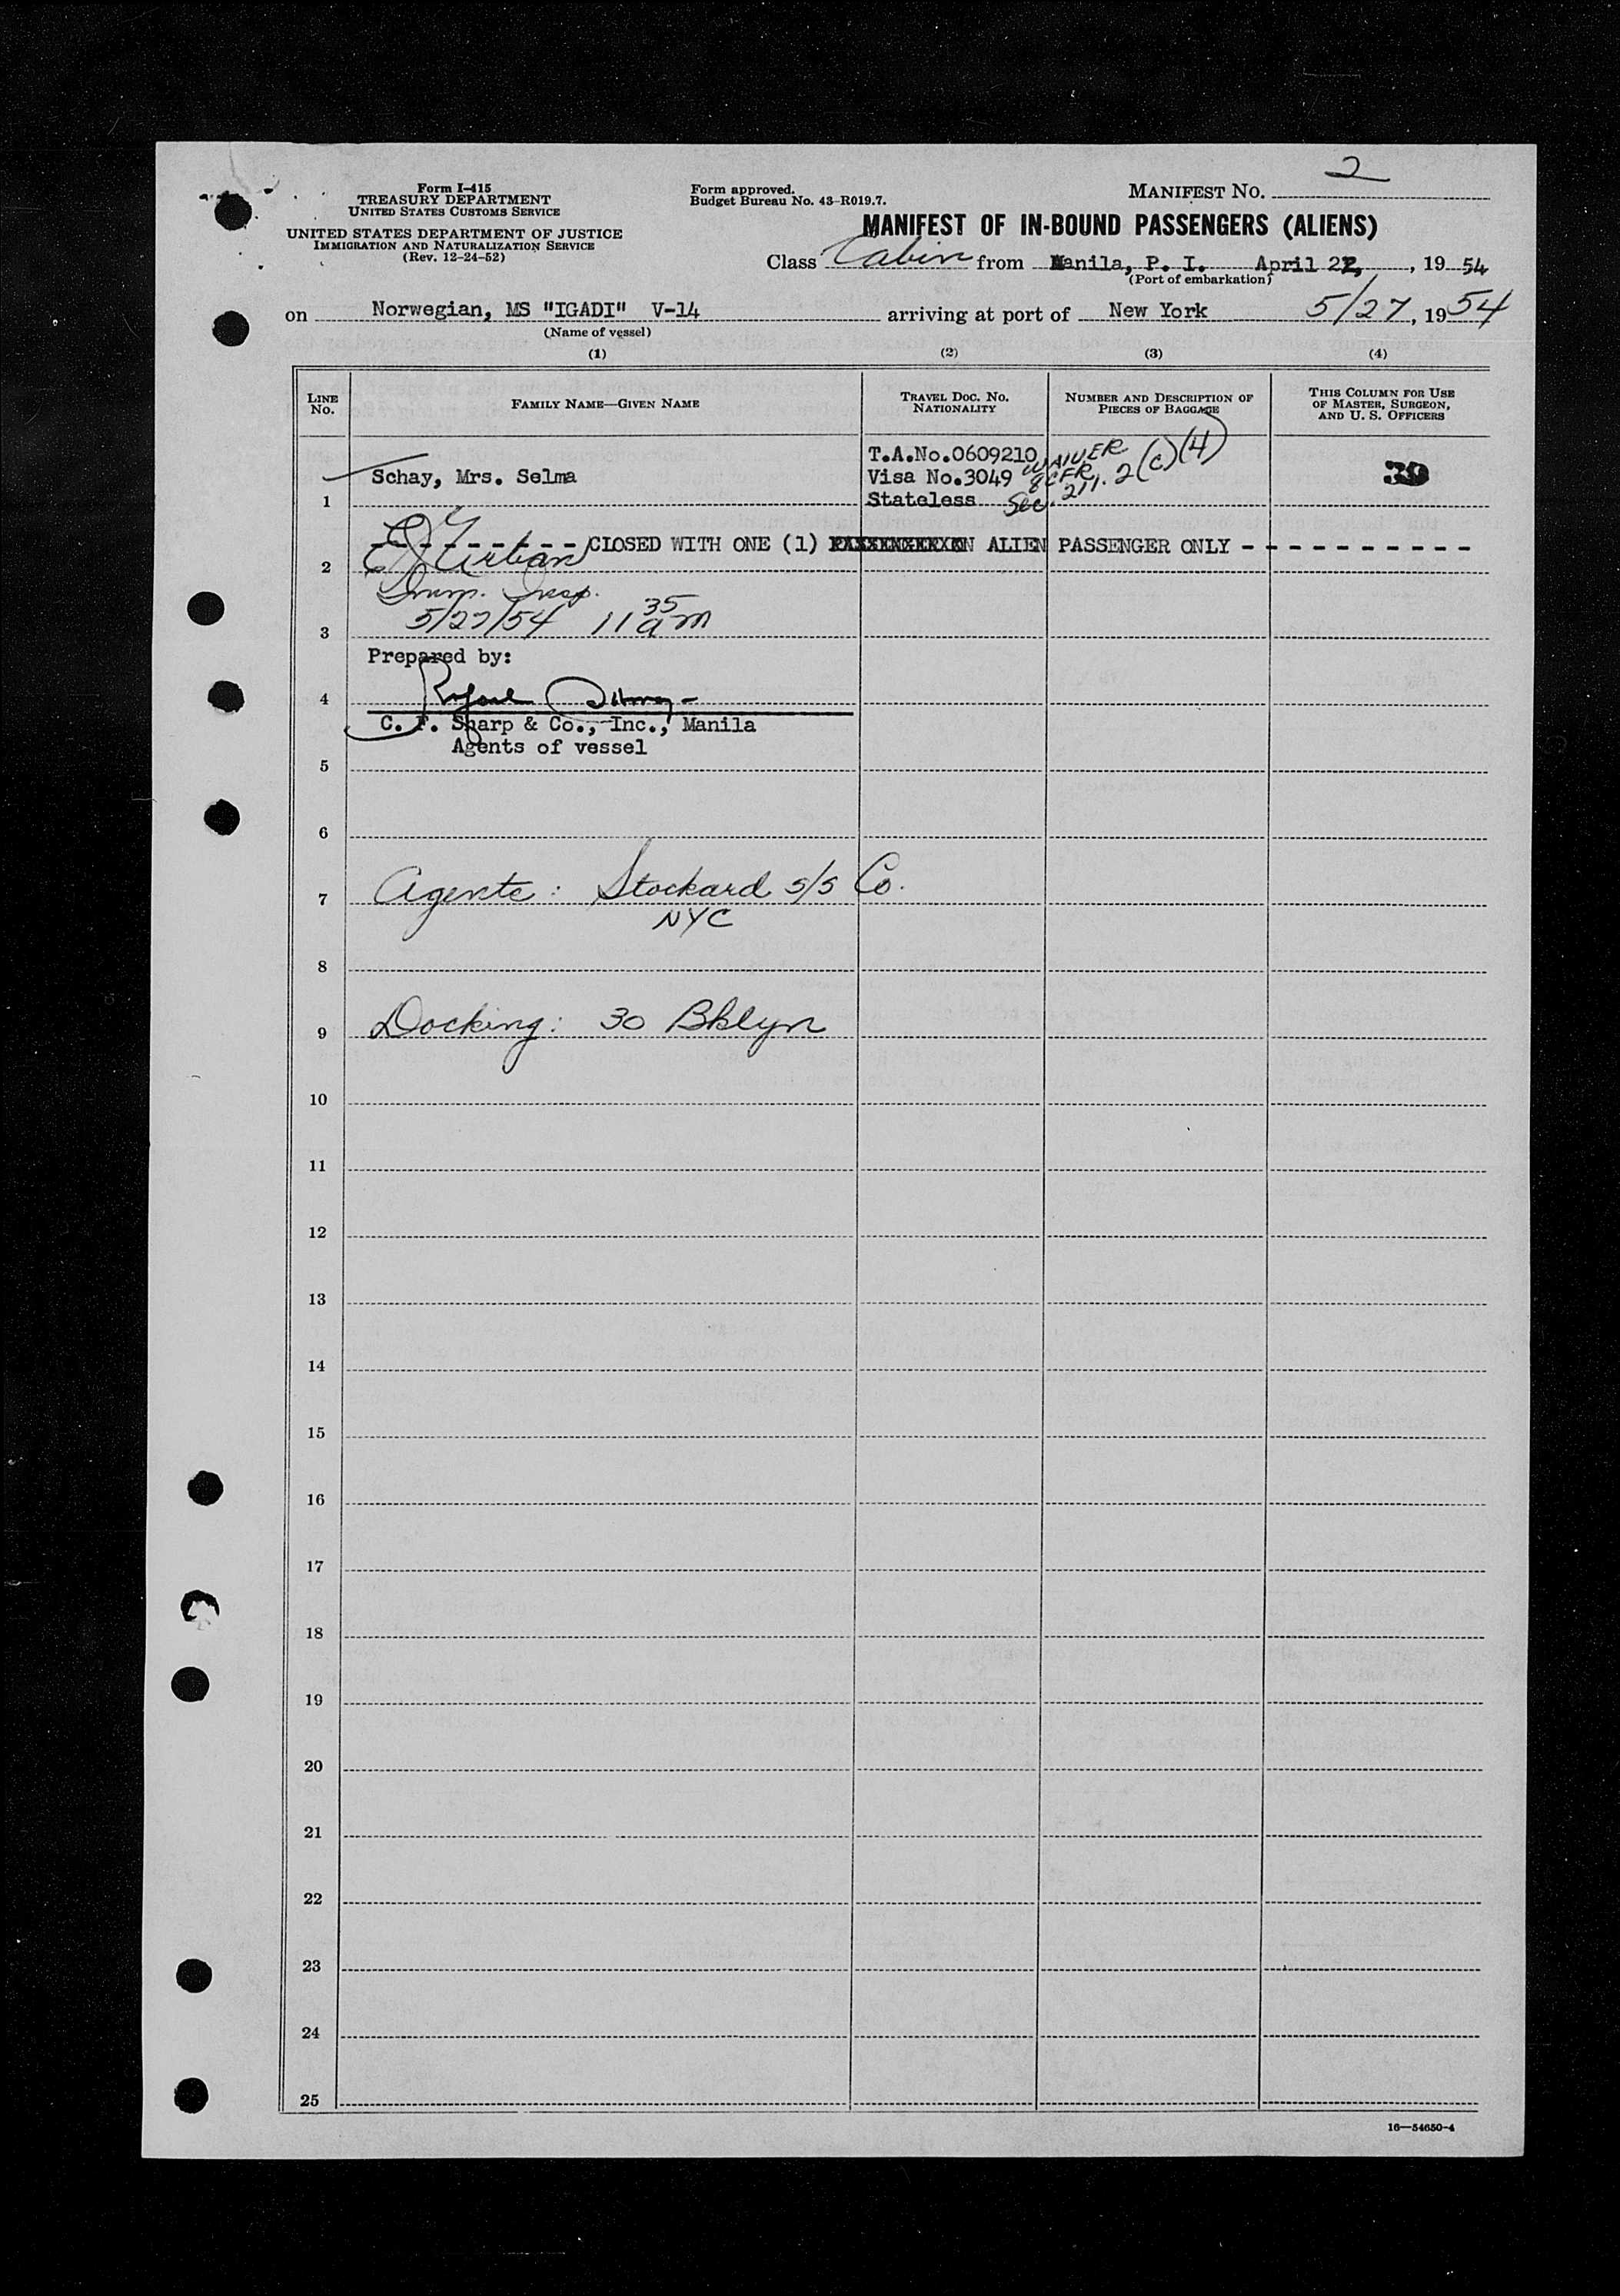 Form I-415
TREASURY DEPARTMENT
UNITED STATES CUSTOMS SERVICE
UNITED STATES DEPARTMENT OF JUSTICE
IMMIGRATION AND NATURALIZATION SERVICE
(Rev. 12-24-52)
Form approved.
Budget Bureau No. 43-R019.7.
MANIFEST NO. 2
MANIFEST OF IN-BOUND PASSENGERS (ALIENS)
Class Cabin from Manila, P. I. April 22, 1954
(Port of embarkation)
on Norwegian, MS "IGADI" V-14 arriving at port of New York 5/27, 1954
(Name of vessel)
(1) (2) (3) (4)
LINE NO. FAMILY NAME—GIVEN NAME TRAVEL DOC. NO. NATIONALITY NUMBER AND DESCRIPTION OF PIECES OF BAGGAGE THIS COLUMN FOR USE OF MASTER, SURGEON, AND U. S. OFFICERS
T.A.No.0609210 WAIVER
Schay, Mrs. Selma Visa No.3049 8CFR
1 Stateless Sec. 211.2(c)(4)
- - - - - - - - - CLOSED WITH ONE (1) ALIEN PASSENGER ONLY - - - - - - - - - - -
2
Imm. Insp.
3 5/27/54 11 35 am
Prepared by:
4
C. F. Sharp & Co., Inc., Manila
Agents of vessel
5
6
7 Agents: Stockard S/S Co.
NYC
8
9 Docking: 30 Bklyn
10
11
12
13
14
15
16
17
18
19
20
21
22
23
24
25
16—54650-4